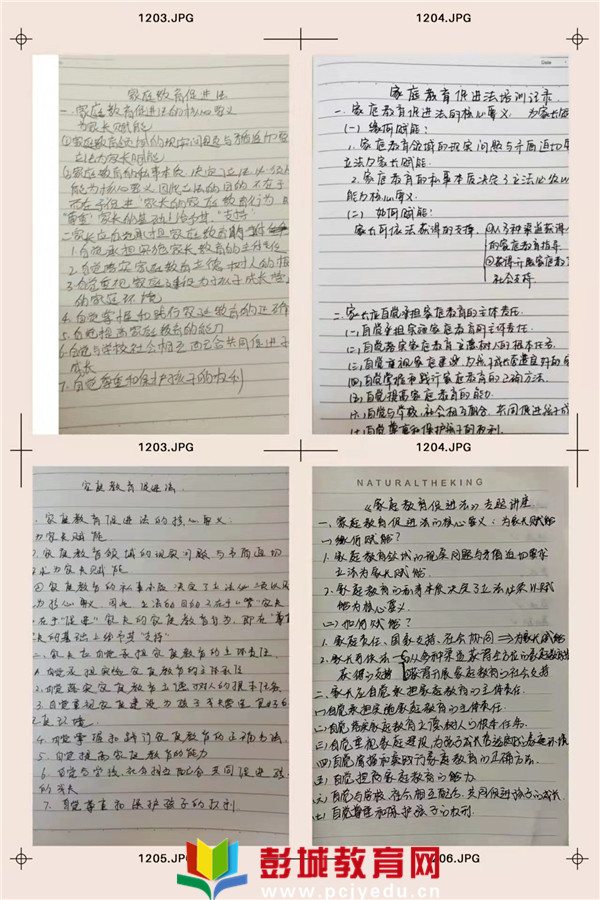 1203.JPG
1204.JPG
家庭教育促进法
一、家庭教育促进法的核心要义
为家长赋能
①家庭教育领域的现实问题与矛盾迫切要
立法为家长赋能
②家庭教育的私事本质,决定了立法必须以
能为核心要义,因此立法的目的不在于
而在于"促进"家长的家庭教育行为,即
"尊重"家长的基础上给予其"支持"
二、家长应自觉承担家庭教育的
1.自觉承担实施家庭教育的主体责任
2.自觉落实家庭教育立德树人的根
3.自觉重视家庭建设为孩子成长营
的家庭环境
4.自觉掌握和践行家庭教育的正确
5.自觉提高家庭教育的能力
6.自觉与学校社会相互配合共同促进孩子
成长
7.自觉尊重和保护孩子的权利
Date
家庭教育促进法培训记录
一、家庭教育促进法的核心要义 为家长赋
(一)缘何赋能:
1.家庭教育领域的现实问题与矛盾迫切
立法为家长赋能.
2.家庭教育的私事本质决定了立法必须以
能为核心要义.
(二)如何赋能:
家长可依法获得的支持.
①从多种渠道获得
的家庭教育指导.
②获得开展家庭教
社会支持.
二、家长应自觉承担家庭教育的主体责任.
(一)自觉承担实施家庭教育的主体责任.
(二)自觉落实家庭教育立德树人的根本任务.
(三)自觉重视家庭建设,为孩子成长营造良好的
(四)自觉掌握和践行家庭教育的正确方法.
(五)自觉提高家庭教育的能力.
(六)自觉与学校、社会相互配合,共同促进孩子成
(七)自觉尊重和保护孩子的权利.
1203.JPG
1204.JPG
家庭教育促进法
家庭教育促进法的核心要义:
为家长赋能
家庭教育领域的现实问题与矛盾迫切
立法为家长赋能
②家庭教育的私事本质,决定了立法必须以
为核心要义,因此,立法的目的不在于"管"家长
在于"促进"家长的家庭教育行为,即在"尊重
长的基础上给予其"支持"
二、家长应自觉承担家庭教育的主体责任
1.自觉承担实施家庭教育的主体责任
2.自觉落实家庭教育立德树人的根本任务
3.自觉重视家庭建设为孩子成长营
庭环境
4.自觉掌握和践行家庭教育的正确方法
5.自觉提高家庭教育的能力
6.自觉与学校、社会相互配合共同促进孩
的成长
7.自觉尊重和保护孩子的权利
NATURALTHEKING
《家庭教育促进法》专题讲座
一、家庭教育促进法的核心要义:为家长赋能
(一)缘何赋能?
1.家庭教育领域的现实问题与矛盾迫切要求
立法为家长赋能.
2.家庭教育的私事本质决定了立法必须以赋
能为核心要义.
(二)如何赋能?
1.家庭负责、国家支持、社会协同⇒为家长赋能
2.家长可依法
获得的支持
从多种渠道获得全方位的家庭教育指
获得开展家庭教育的社会支持
二、家长应自觉承担家庭教育的主体责任
(一)自觉承担实施家庭教育的主体责任.
(二)自觉落实家庭教育立德树人的根本任务.
(三)自觉重视家庭建设,为孩子成长营造良好的家庭环境
(四)自觉掌握和践行家庭教育的正确方法.
(五)自觉提高家庭教育的能力
(六)自觉与学校、社会相互配合,共同促进孩子的成长
(七)自觉尊重和保护孩子的权利
1205.JPG
06.JPG
彭城教育网
www.pcjyedu.cn